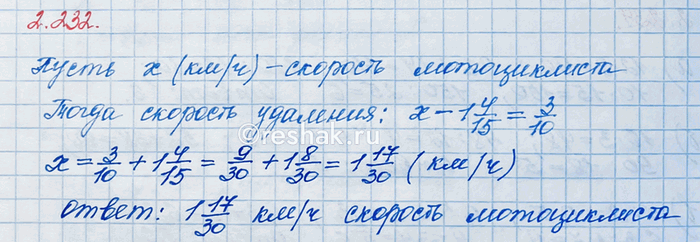 2.232.
Пусть x (км/ч) – скорость мотоциклиста
Тогда скорость удаления: x − 1 4/15 = 3/10
©reshak.ru
x = 3/10 + 1 4/15 = 9/30 + 1 8/30 = 1 17/30 (км/ч)
ответ: 1 17/30 км/ч скорость мотоциклиста